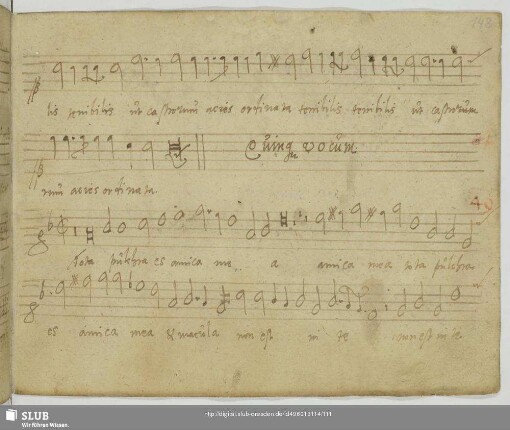 148
lis terribilis ut castrorum acies ordinata terribilis terribilis ut castrorum
rum acies ordinata
Quinque vocum
4
Tota pulchra es amica me a amica mea tota pulchra
es amica mea & macula non est in te non est in te
SLUB
Wir führen Wissen.
http://digital.slub-dresden.de/id408013114/111